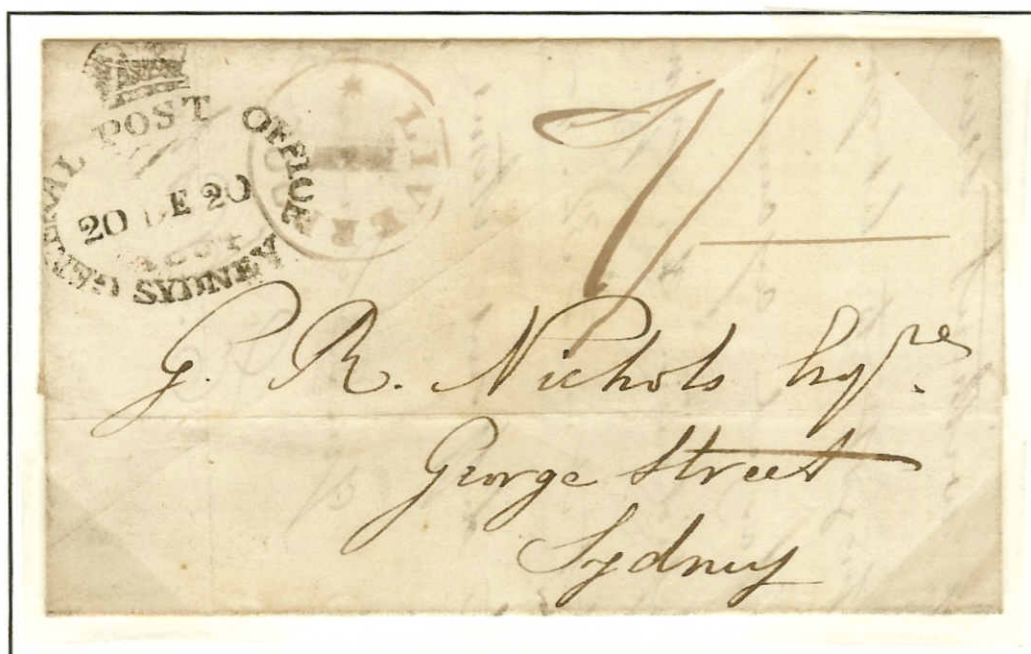 GENERAL POST OFFICE SYDNEY
20 DE 20
LIVERPOOL
7/
G. R. Nichols Esqre.
George Street
Sydney